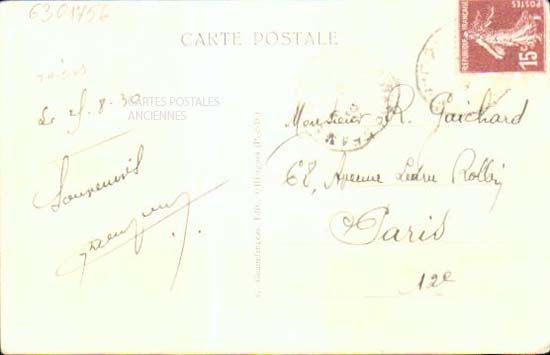 6301756
CARTE POSTALE
REPUBLIQUE FRANÇAISE
POSTES
15c
Le 25.8.30
CARTES POSTALES
ANCIENNES
Souvenirs
Monsieur R. Guichard
68, Avenue Ledru Rollin
Paris
12e